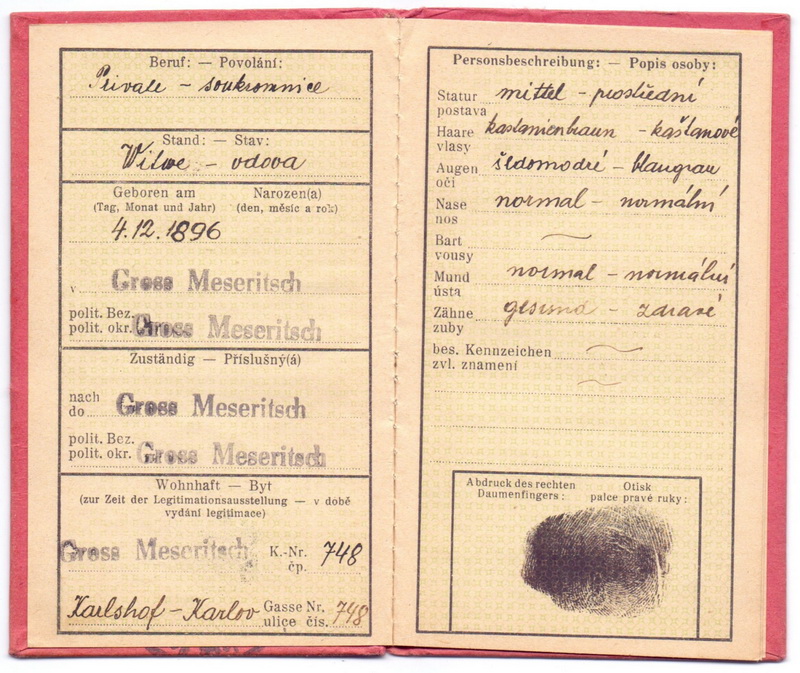 Beruf: — Povolání:
Private – soukromnice
Stand: — Stav:
Witwe – vdova
Geboren am Narozen(a)
(Tag, Monat und Jahr) (den, měsíc a rok)
4. 12. 1896
v Gross Meseritsch
polit. Bez.
polit. okr. Gross Meseritsch
Zuständig — Příslušný(á)
nach
do Gross Meseritsch
polit. Bez.
polit. okr. Gross Meseritsch
Wohnhaft — Byt
(zur Zeit der Legitimationsausstellung — v době
vydání legitimace)
Gross Meseritsch K.-Nr. 748
čp.
Karlshof – Karlov Gasse Nr. 748
ulice čís.
Personsbeschreibung: — Popis osoby:
Statur mittel – prostřední
postava
Haare kastanienbraun – kaštanové
vlasy
Augen šedomodré – blaugrau
oči
Nase normal – normální
nos
Bart
vousy
Mund normal – normální
ústa
Zähne gesund – zdravé
zuby
bes. Kennzeichen
zvl. znamení
Abdruck des rechten Otisk
Daumenfingers: palce pravé ruky: